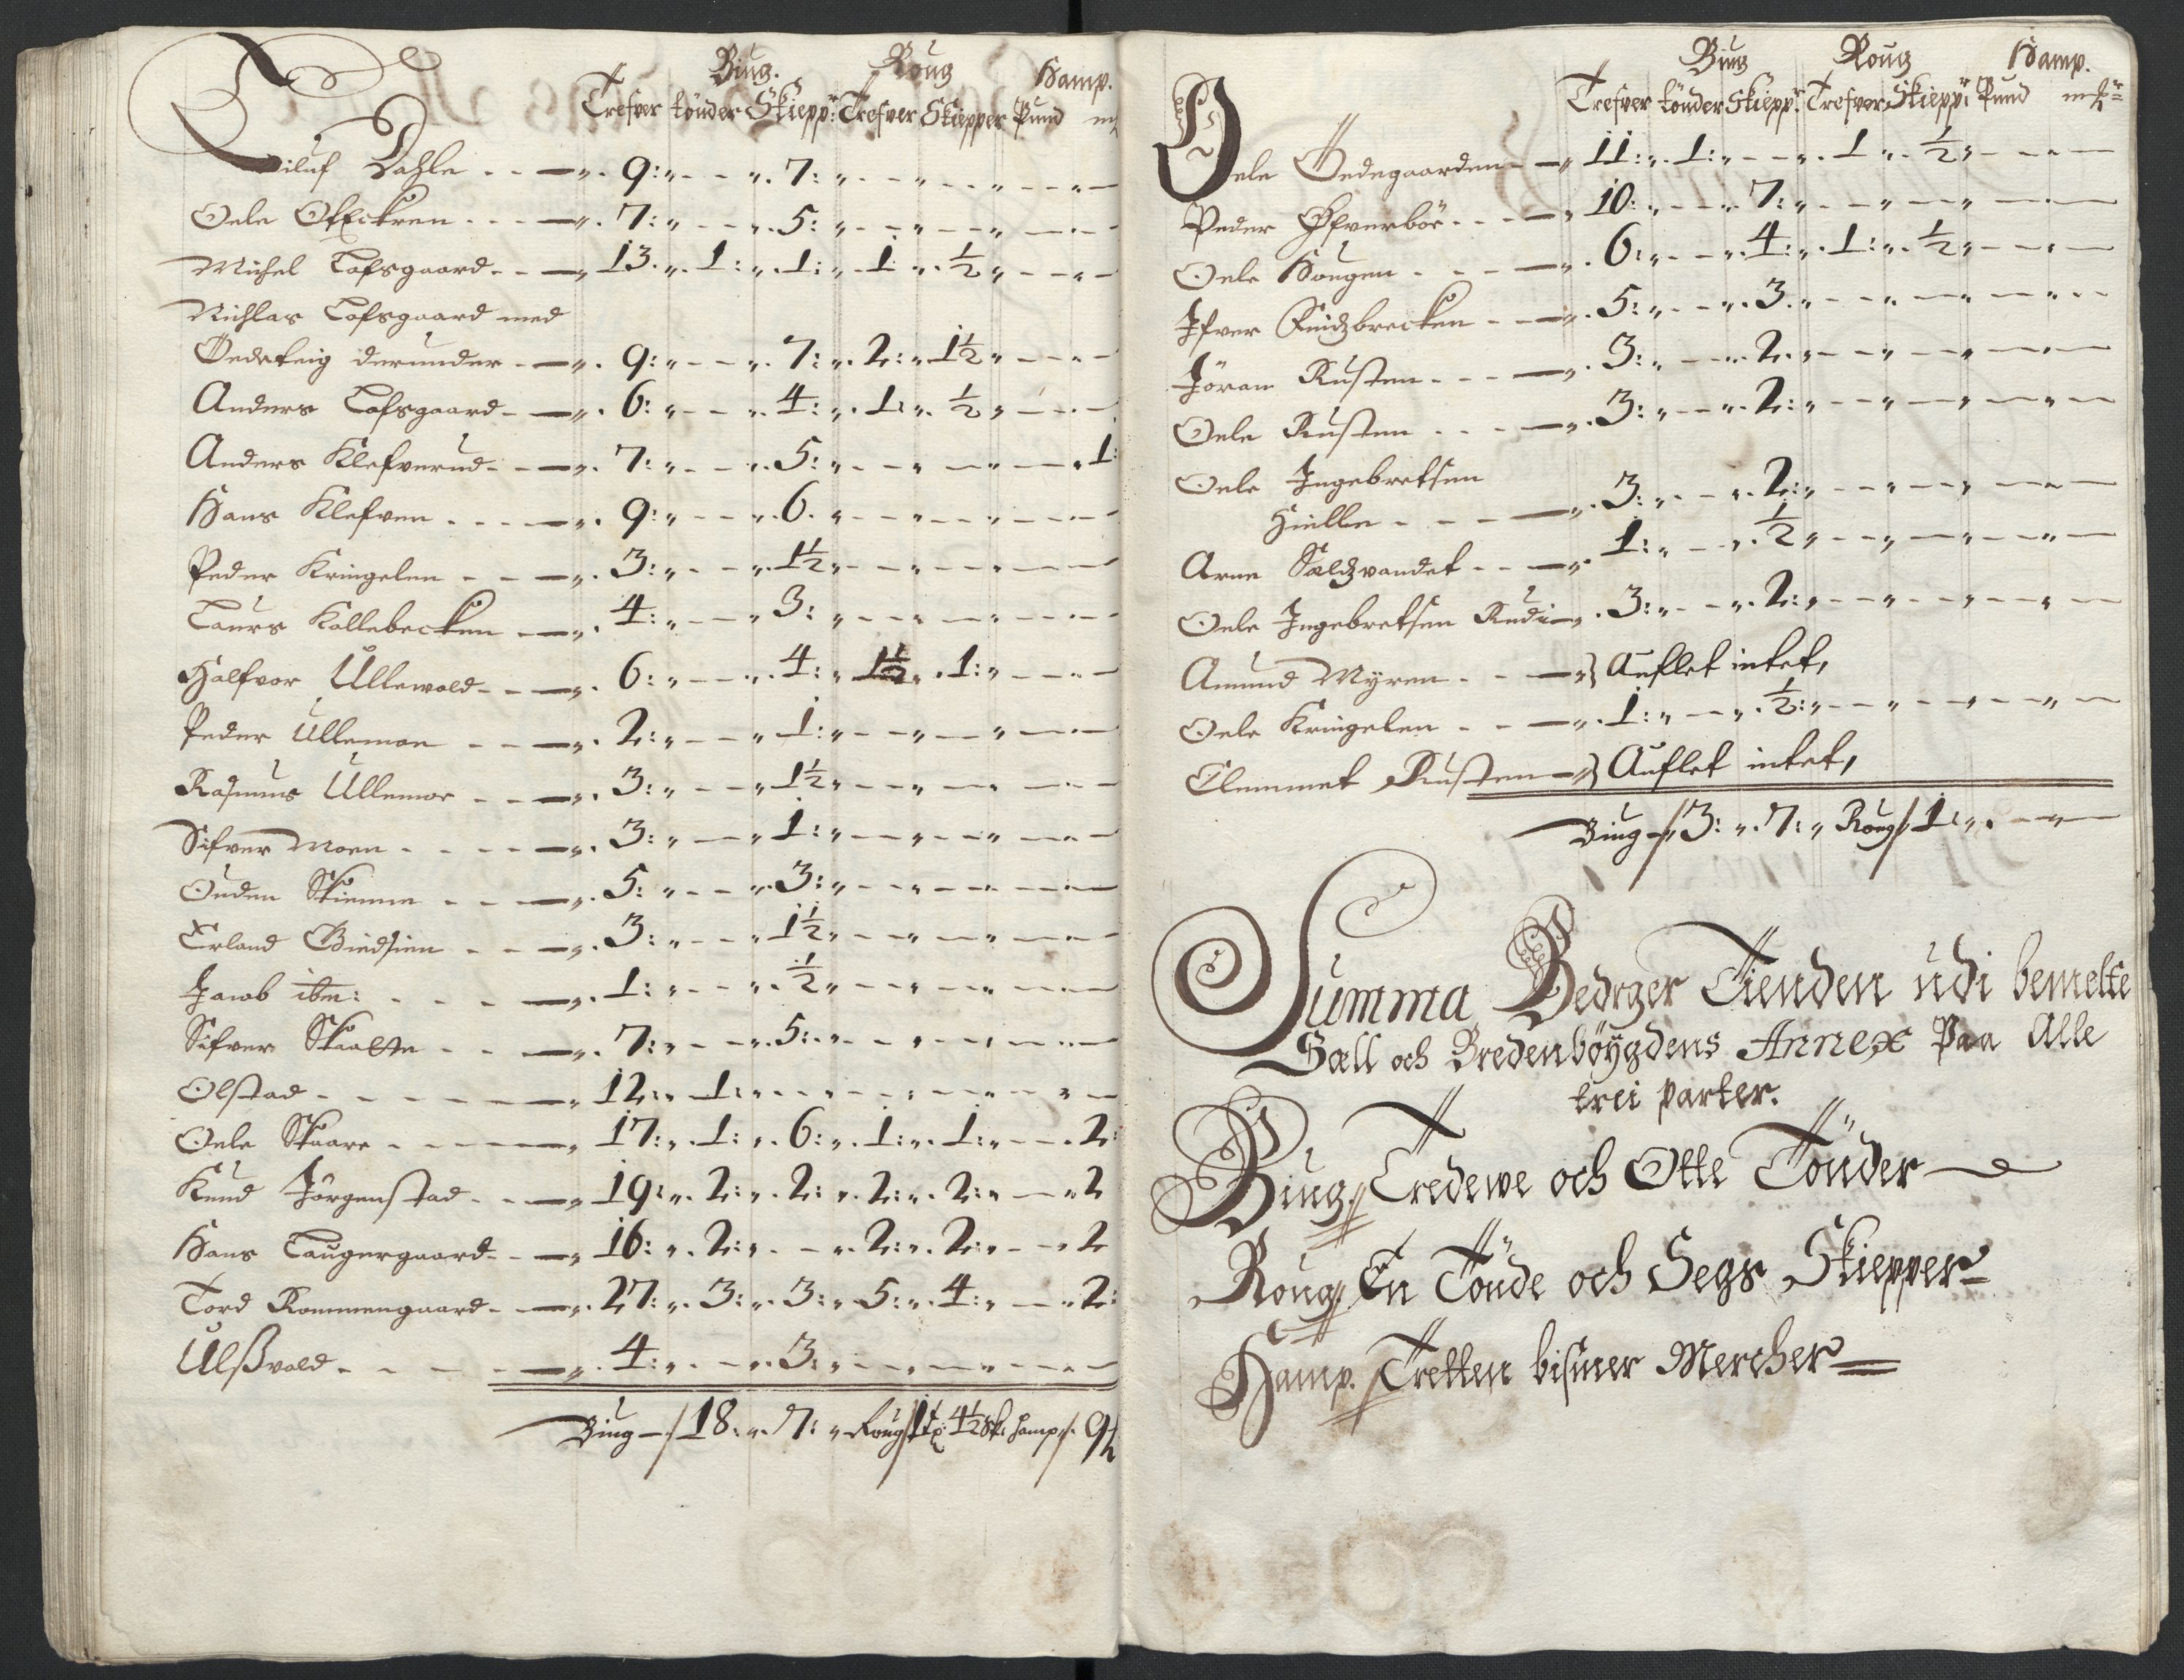 Biug. Roug Hamp.
Trefver tönder Skiepp: Trefver Skiepper Pund m
Eiluf Dahle - - 9: " - - " 7: " - - " - - " - - " -
Oele Ofeckren - - 7: " - - " 5: " - - " - - " - -
Michel Tofsgaard - - 13 " 1: " 1: " 1 " ½ " - - " -
Nichlas Tofsgaard med
Oedeteig derunder - - 9: " - - " 7: " 2: " 1½ " - - -
Anders Tofsgaard - - 6: " - - " 4: " 1: " ½ " - - -
Anders Klefverud - - 7: " - - " 5: " - - " - - " - - " 1:
Hans Klefven - - 9: " - - " 6 " - - " - - " - -
Peder Kringelen - - 3: " - - " 1½ " - - " - - " - -
Laurs Kollebecken - - 4: " - - " 3: " - - " - - " - -
Halfvor Ullewold - - 6: " - - " 4: " 1½ " 1: " - - -
Peder Ullemoe - - 2: " - - " 1: " - - " - - " - -
Rasmus Ullemoe - - 3: " - - " 1½ " - - " - - " - -
Sifver Moen - - 3: " - - " 1: " - - " - - " - -
Ouden Skienne - - 5: " - - " 3: " - - " - - " - -
Erland Giedsien - - 3: " - - " 1½ " - - " - - " - -
Jacob ibm: - - 1: " - - " ½ " - - " - - " - -
Sifver Skaalle - - 7: " - - " 5: " - - " - - " - -
Olstad - - 12: " 1: " - - " - - " - - " -
Oele Skaare - - 17: " 1: " 6: " 1: " 1: " - - 2:
Knud Jörgenstad - - 19: " 2: " 2: " 2: " 2: " - " 2
Hans Taugergaard - - 16: " 2: " - - " 2: " 2: " - " 2
Tord Rommengaard - - 27: " 3: " 3: " 5: " 4: " - " 2:
Ulßvold - - 4: " - - " 3: " - - " - - " - -
Biug - 18: " 7: " Roug 1 tø: 4½ sk: hamp 9
Biug Roug Hamp.
Trefver tönder Skiepp: Trefver Skiepp: Pund
Oele Oedegaarden - - 11: " 1: " - - " 1 " ½ " - - -
Peder Øfverböe - - 10: " - - " 7: " - - " - - " - -
Oele Hougen - - 6: " - - " 4: " 1: " ½ " - - -
Ifver Quidzbrecken - - 5: " - - " 3 " - - " - - " - -
Jöran Rusten - - 3: " - - " 2 " - - " - - " - -
Oele Rusten - - 3: " - - " 2: " - - " - - " - -
Oele Ingebretsen
Hielle - - 3: " - - " 2: " - - " - - " - -
Arne Sældzvandet - - 1: " - - " ½ " - - " - - " - -
Oele Ingebretsen Rudi - 3: " - - " 2: " - - " - - " - -
Amund Myren - - Auflet intet,
Oele Kringelen - - 1: " - - " ½: " - - " - - " - -
Clemmet Rusten - Auflet intet,
Biug - 3: " 7: " Roug 1: " - -
Summa Bedrger Tienden udi bemelte
Sæll och Bredenböygdens Annex Paa Alle
trei parter.
Biug Tredewe och Otte Tönder
Roug En Tönde och Segs Skiepper
Hamp. Tretten bismer Mercher